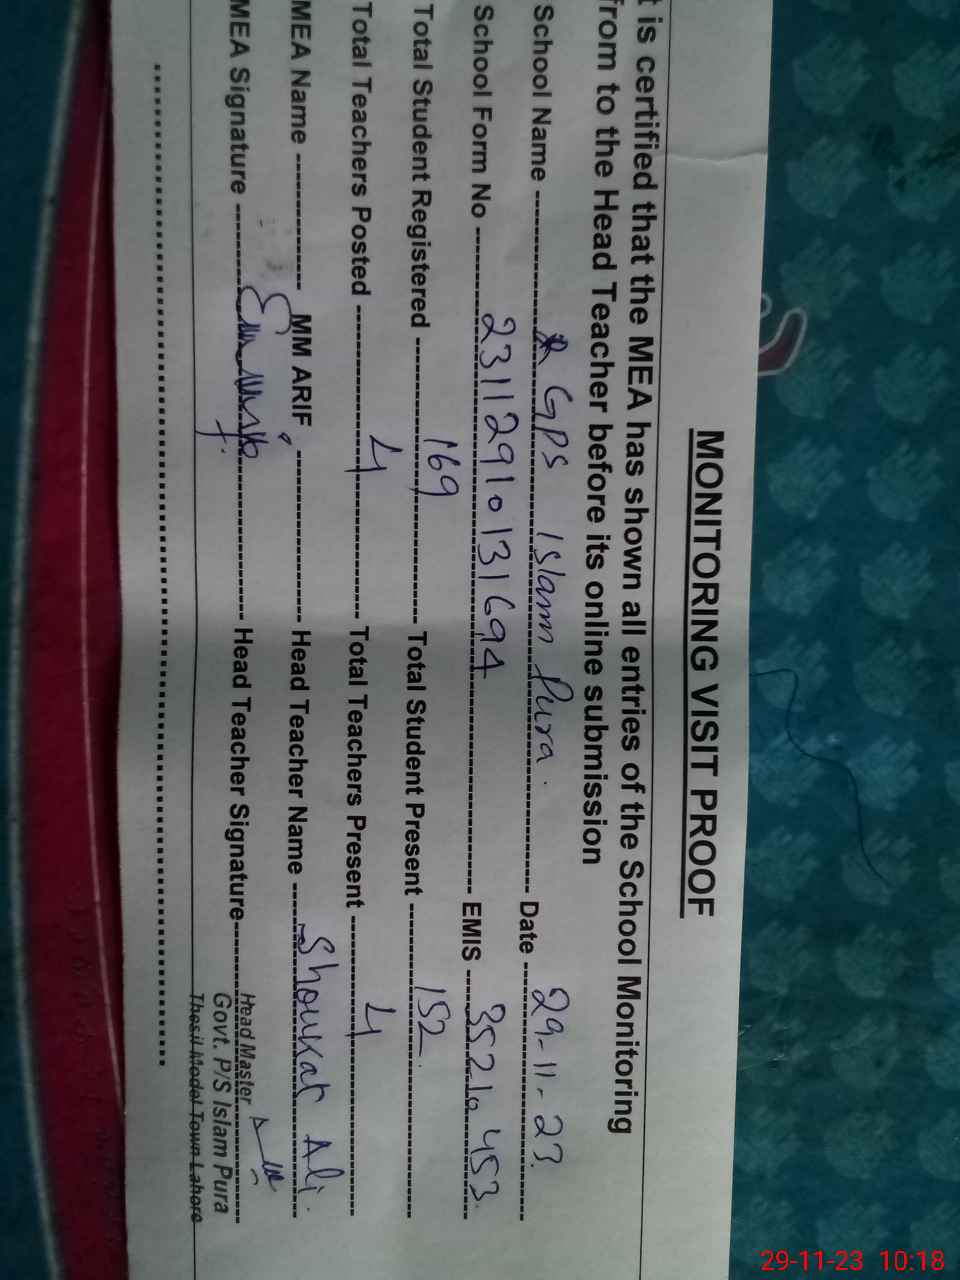 MONITORING VISIT PROOF
t is certified that the MEA has shown all entries of the School Monitoring
from to the Head Teacher before its online submission
School Name GPS Islam Pura. Date 29-11-23
School Form No 23112910131694 EMIS 35210453
Total Student Registered 169 Total Student Present 152
Total Teachers Posted 4 Total Teachers Present 4
MEA Name MM ARIF Head Teacher Name Shoukat Ali.
MEA Signature Head Teacher Signature
Head Master
Govt. P/S Islam Pura
Thesil Model Town Lahore
29-11-23 10:18